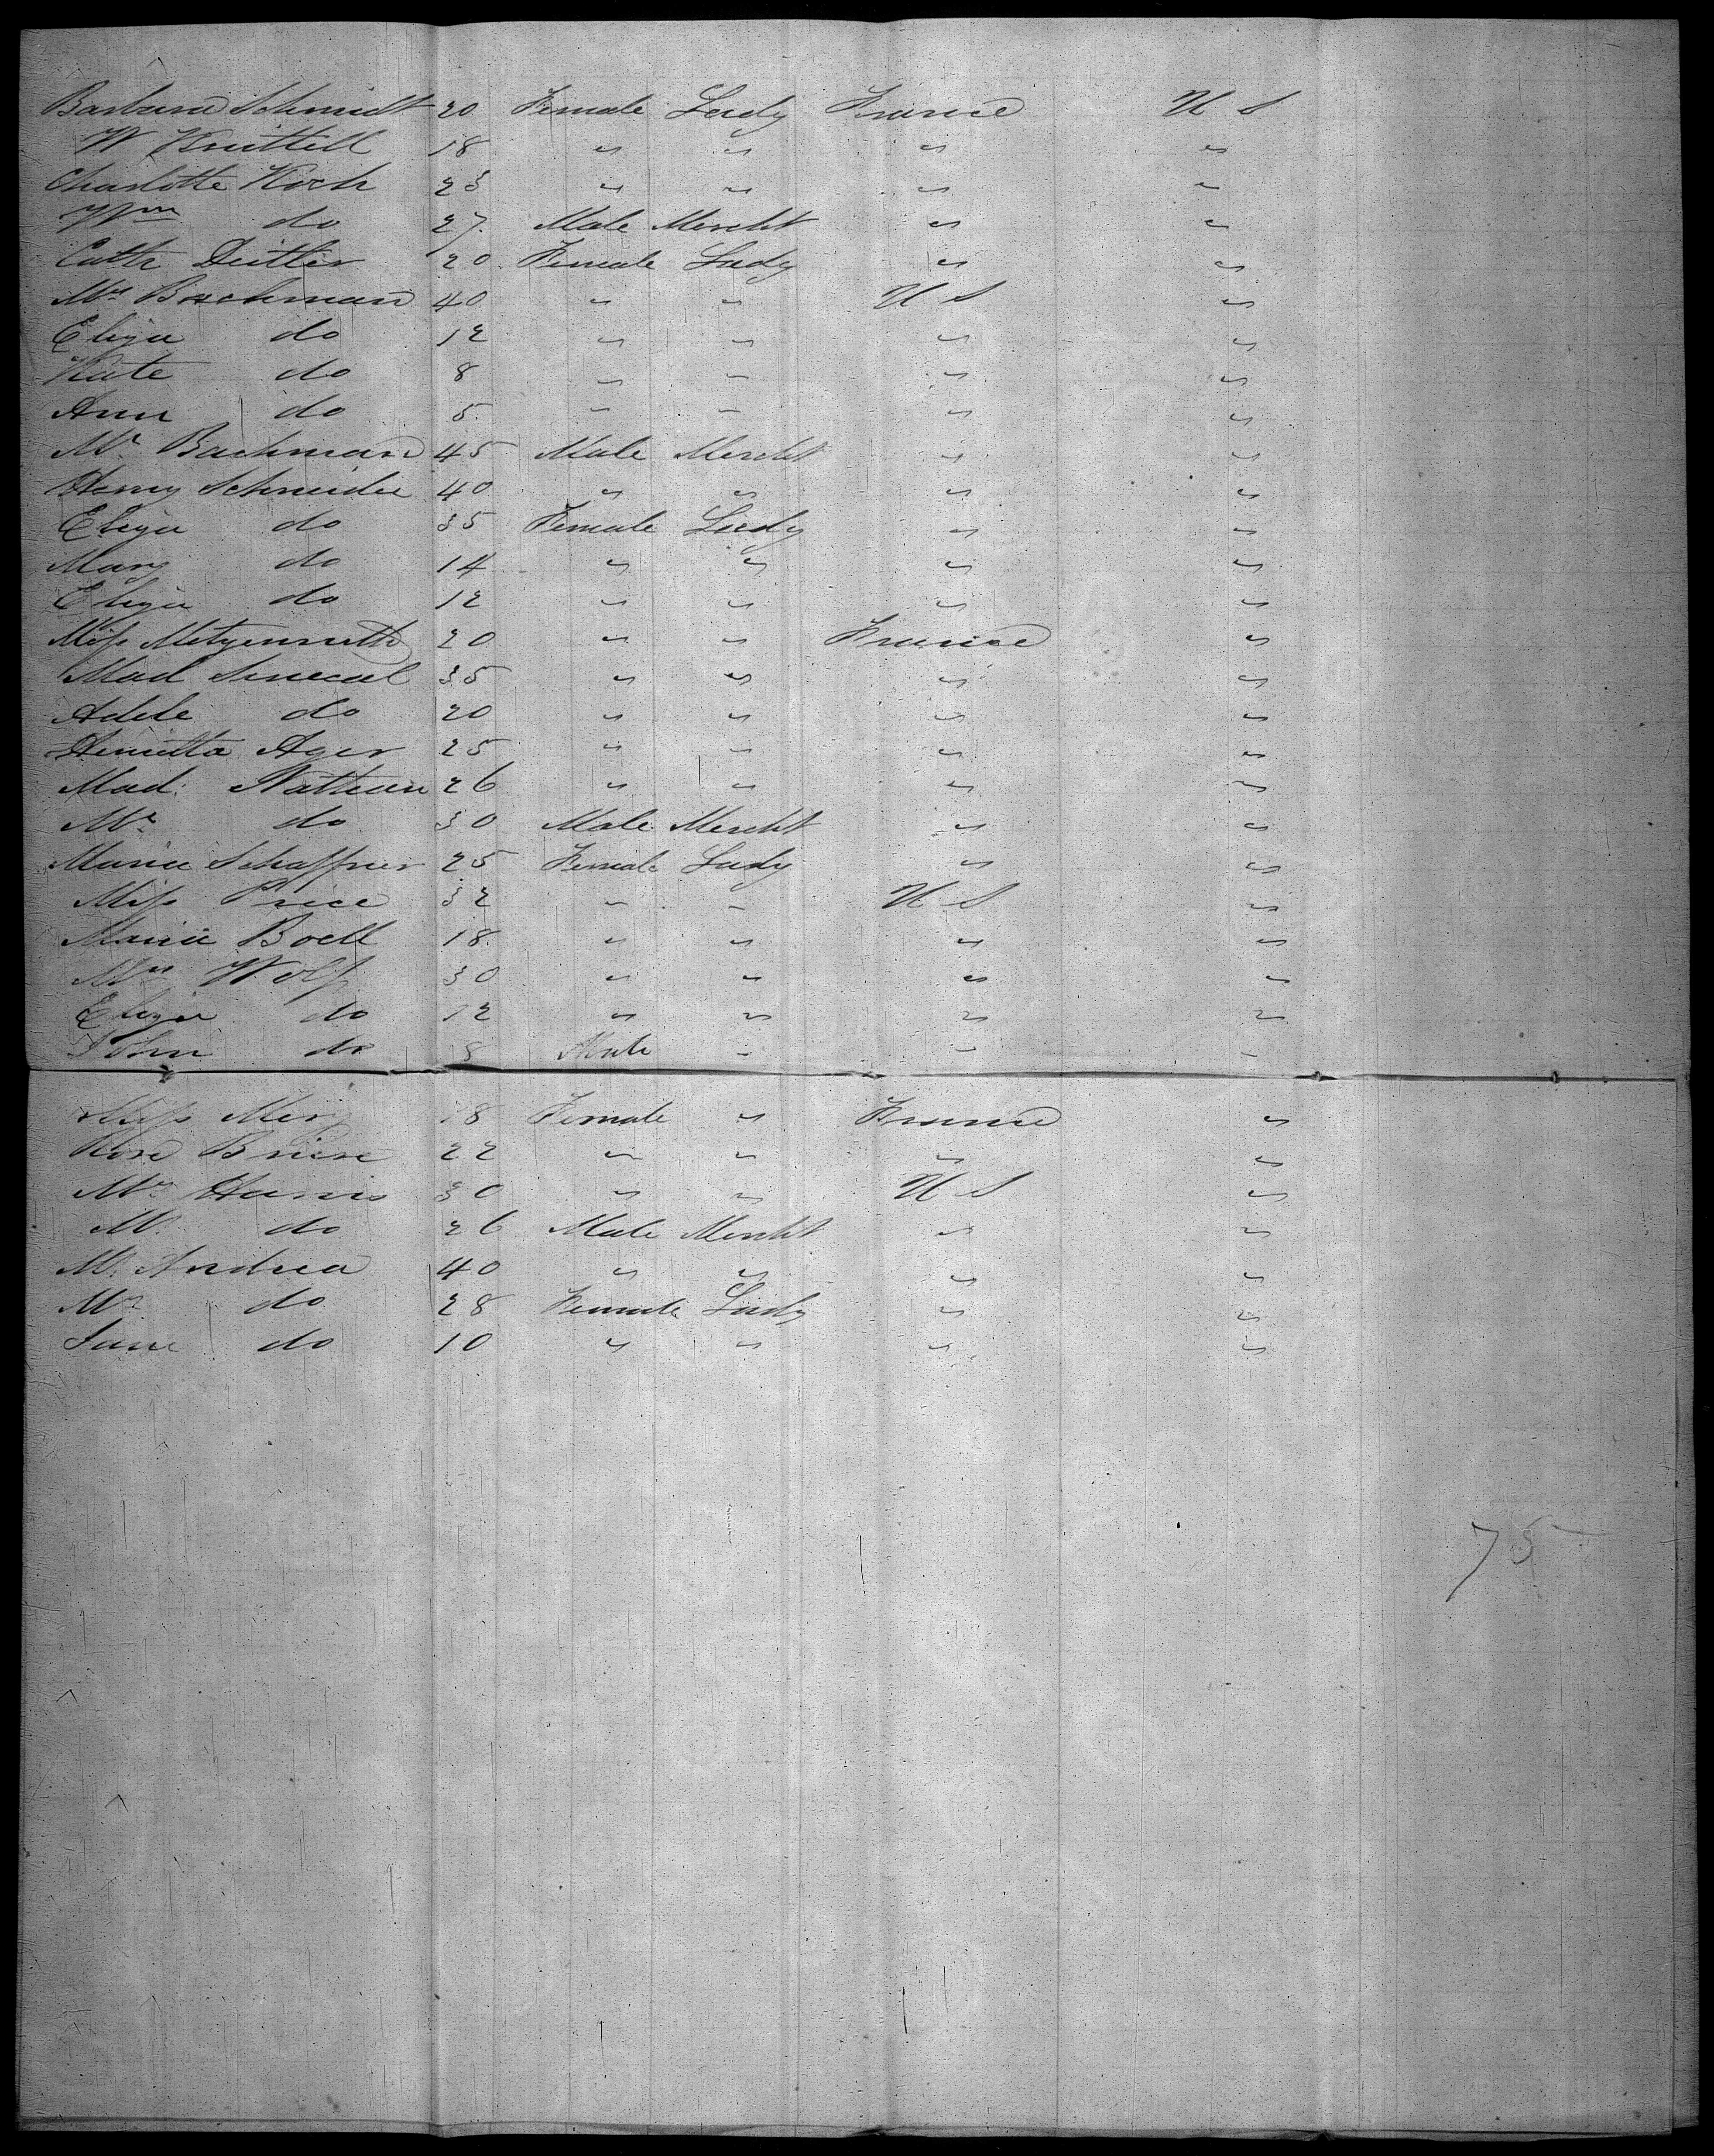 Barbara Schmidt 20 Female Lady France U S
W Knittell 18 " " " "
Charlotte Koch 23 " " " "
Wm do 27. Male Mercht " "
Cath Deitler 20. Female Lady " "
Mrs Bachman 40 " " U S "
Eliza do 12 " " " "
Kate do 8 " " " "
Ann do 5. " " " "
Mr Bachman 45 Male Mercht " "
Henry Schneider 40 " " " "
Eliza do 35 Female Lady " "
Mary do 14 " " " "
Eliza do 12 " " " "
Miss 20 " " France "
Mad Senecal 35 " " " "
Adele do 20 " " " "
Henrietta Ager 25 " " " "
Mad: Nathan 26 " " " "
Mr do 30 Male Mercht " "
Maria Schaffner 25 Female Lady " "
Miss Price 32 " " U S "
Maria Boell 18. " " " "
Mrs Wolf 30 " " " "
Eliza do 12 " " " "
John do 18 Male " " "
Miss 18 Female " France "
Rose Briere 22 " " " "
Mrs Harris 30 " " U S "
Mr do 26 Male Mercht " "
M. Andrea 40 " " " "
Mrs do 28 Female Lady " "
Jane do 10 " " " "
75